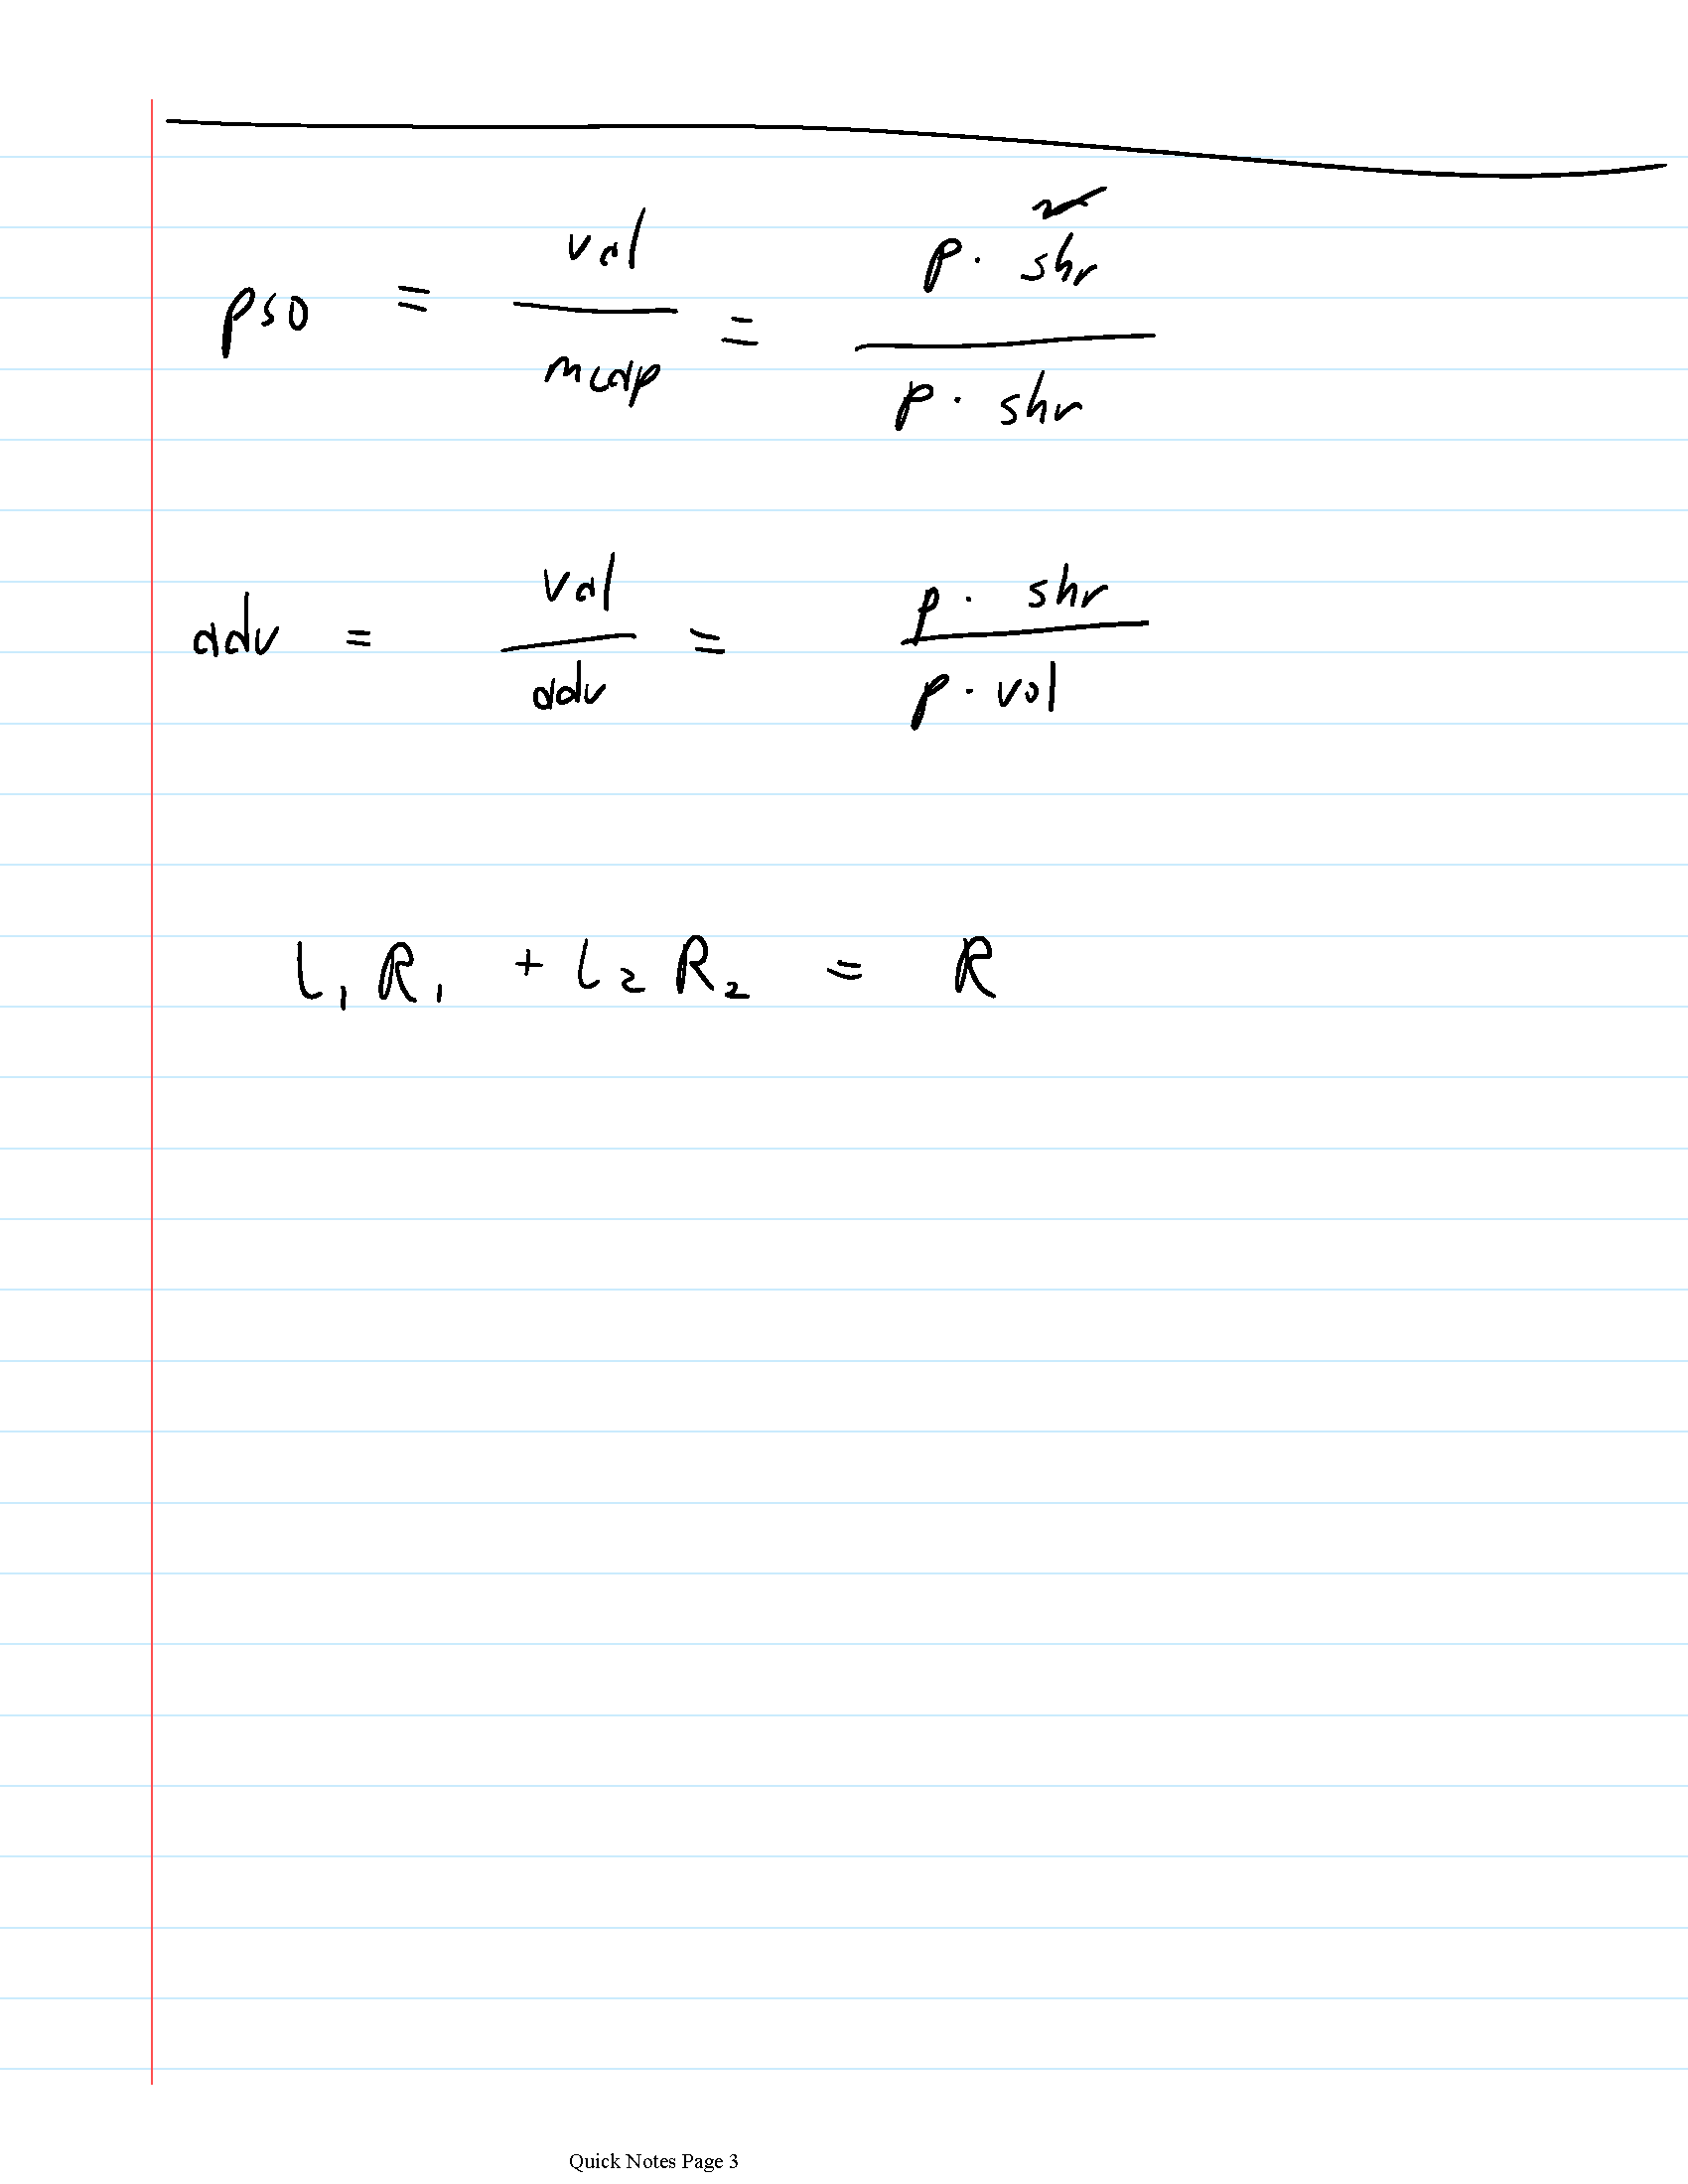 pso = val / mcap = p · shr / p · shr
adv = val / adv = p · shr / p · vol
l₁ R₁ + l₂ R₂ = R
Quick Notes Page 3